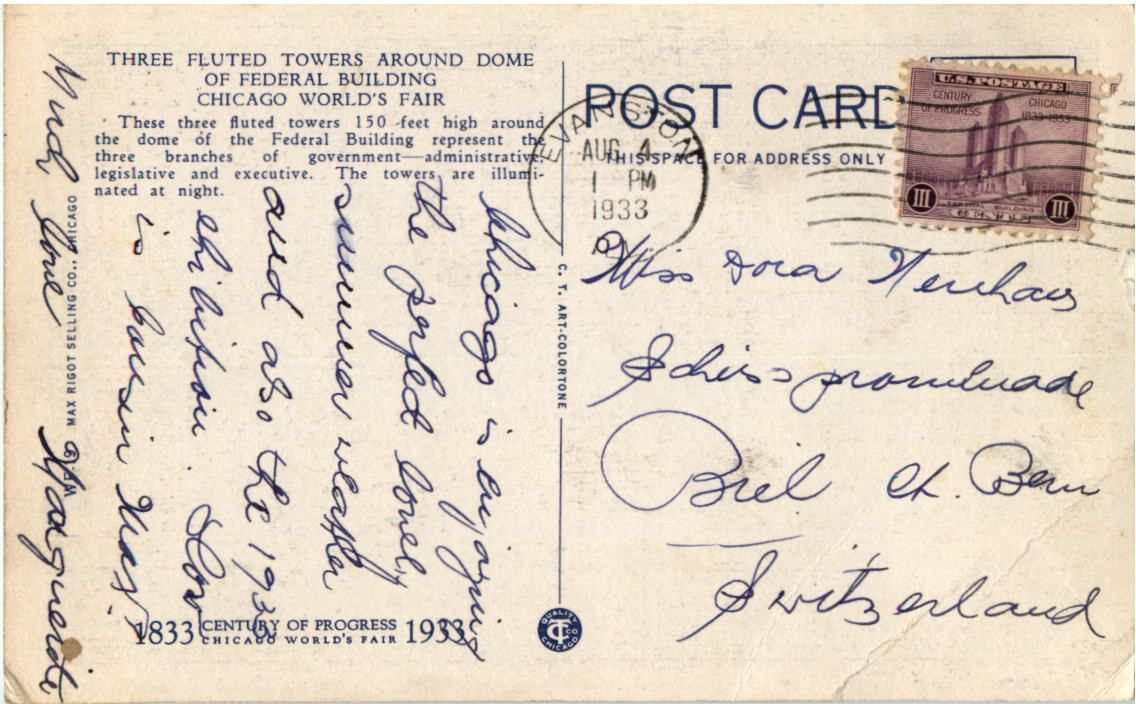 THREE FLUTED TOWERS AROUND DOME
OF FEDERAL BUILDING
CHICAGO WORLD'S FAIR
These three fluted towers 150 feet high around
the dome of the Federal Building represent the
three branches of government—administrative,
legislative and executive. The towers are illumi-
nated at night.
Chicago is enjoying
the perfect lovely
summer weather
and also the 1933
exhibition. How
is cousin May?
Much love Marguerite
W.F. 69 MAX RIGOT SELLING CO., CHICAGO
1833 CENTURY OF PROGRESS 1933
CHICAGO WORLD'S FAIR
C. T. ART-COLORTONE
QUALITY
CT CO
CHICAGO
POST CARD
THIS SPACE FOR ADDRESS ONLY
EVANSTON
AUG 4
1 PM
1933
U.S. POSTAGE
CENTURY OF PROGRESS
CHICAGO 1833-1933
III FEDERAL BUILDING III
CENTS
Miss Dora Neuhaus
Schüsspromenade
Biel Ct. Bern
Switzerland